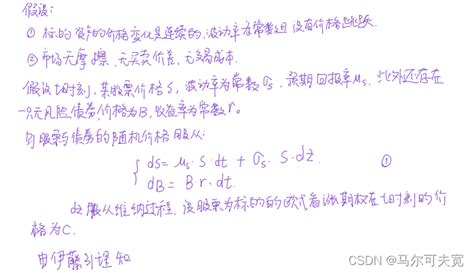 假设:
① 标的资产的价格变化是连续的,波动率为常数且没有价格跳跃.
② 市场无摩擦、无买卖价差,无交易成本.
假设t时刻,某股票价格S,波动率为常数σs,预期回报率μs,此外还存在
一只无风险债券,价格为B,收益率为常数r。
则股票与债券的随机价格服从:
{ dS = μs·S·dt + σs·S·dz.
dB = B·r·dt. ①
dz服从维纳过程,该股票为标的的欧式看涨期权在t时刻的价
格为C.
由伊藤引理知
CSDN @马尔可夫宽